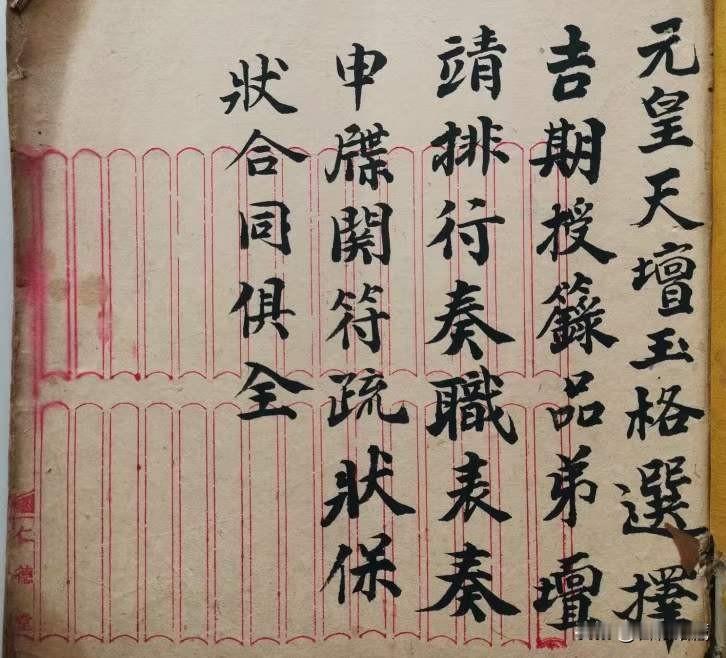 元皇天壇玉格選擇
吉期授籙品弟壇
靖排行奏職表奏
申牒関符疏狀保
狀合同俱全
仁德堂